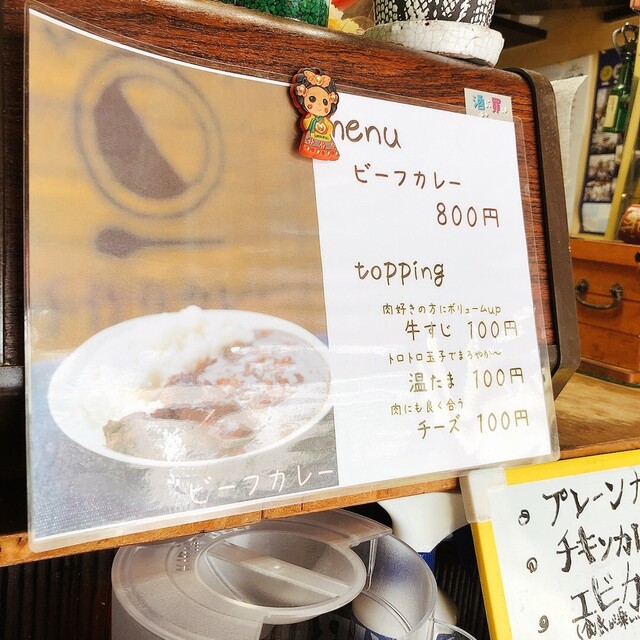 menu
ビーフカレー
800円
topping
肉好きの方にボリュームup
牛すじ 100円
トロトロ玉子でまろやか〜
温たま 100円
肉にも良く合う
チーズ 100円
ビーフカレー
プレーンカ
チキンカレ
エビカ